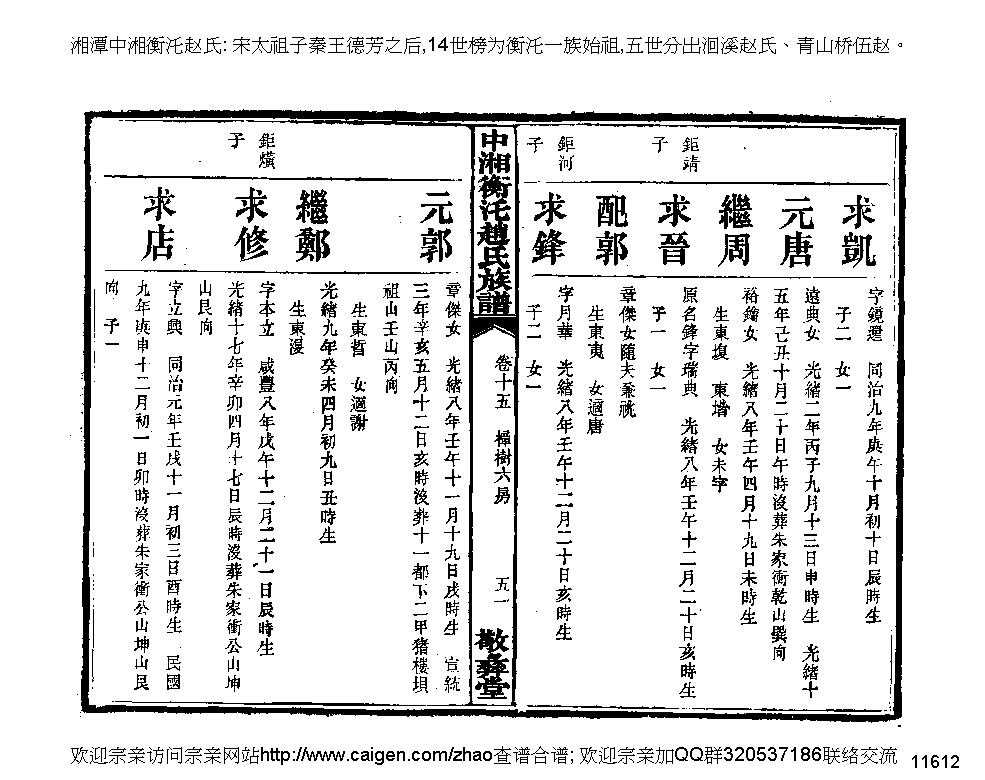 湘潭中湘衡沌赵氏: 宋太祖子秦王德芳之后,14世榜为衡沌一族始祖,五世分出洄溪赵氏、青山桥伍赵。
求凱
字鏡
同治九年庚午十月初十日辰時生
子二 女一
元唐
遠典女 光緒二年丙子九月十三日申時生 光緒十
五年己丑十月二十日午時沒葬朱家衝乾山巽向
繼周
裕鑄女 光緒八年壬午四月十九日未時生
生東㙮 東墻 女未字
鉅靖
子
求晉
原名鋒字瑞典 光緒八年壬午十二月二十日亥時生
子一 女一
配郭
章傑女隨夫兼祧
生東夷 女適唐
鉅河
子
求鋒
字月華 光緒八年壬午十二月二十日亥時生
子二 女一
中湘衡沌趙氏族譜
卷十五 樟樹六房
五一
敬彝堂
元郭
章傑女 光緒八年壬午十一月十九日戌時生 宣統
三年辛亥五月十二日亥時沒葬十一都下二甲猪樓垻
祖山壬山丙向
生東晢 女適謝
繼鄭
光緒九年癸未四月初九日丑時生
生東漫
鉅爌
子
求修
字本立 咸豐八年戊午十二月二十一日辰時生
光緒十七年辛卯四月十七日辰時沒葬朱家衝公山坤
山艮向
求店
字立興 同治元年壬戌十一月初三日酉時生 民國
九年庚申十二月初一日卯時沒葬朱家衝公山坤山艮
向 子一
欢迎宗亲访问宗亲网站http://www.caigen.com/zhao查谱合谱; 欢迎宗亲加QQ群320537186联络交流
11612